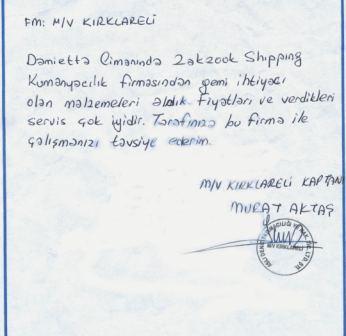 FM: M/V KIRKLARELİ
Damietta Limanında Zakzook Shipping
Kumanyacılık firmasından gemi ihtiyacı
olan malzemeleri aldık. Fiyatları ve verdikleri
servis çok iyidir. Tarafınıza bu firma ile
çalışmanızı tavsiye ederim.
M/V KIRKLARELİ KAPTANI
MURAT AKTAŞ
M/V KIRKLARELİ